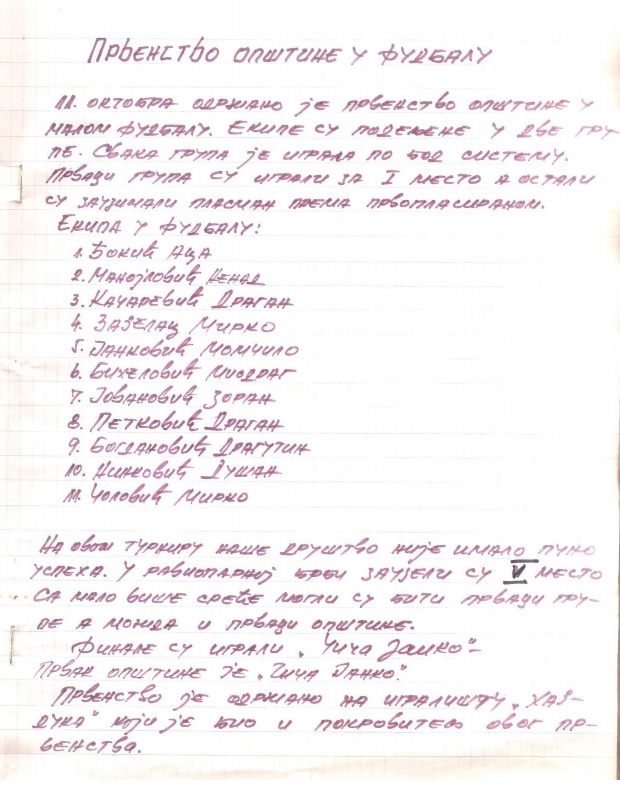 Првенство општине у фудбалу
11. октобра одржано је првенство општине у
малом фудбалу. Екипе су подељене у две гру-
пе. Свака група је играла по бод систему.
Прваци група су играли за I место а остали
су заузимали пласман према првопласираном.
Екипа у фудбалу:
1. Ђокић Аца
2. Манојловић Ненад
3. Качаревић Драган
4. Зазелац Мирко
5. Јанковић Момчило
6. Бихеловић Миодраг
7. Јовановић Зоран
8. Петковић Драган
9. Богдановић Драгутин
10. Нинковић Душан
11. Чоловић Мирко
На овом турниру наше друштво није имало пуно
успеха. У равноправној борби заузели су место
Са мало више среће могли су бити прваци гру-
пе а можда и прваци општине.
Финале су играли „Чича Јанко"-
Првак општине је „Чича Јанко".
Првенство је одржано на игралишту „Хај-
дука" који је био и покровитељ овог пр-
венства.